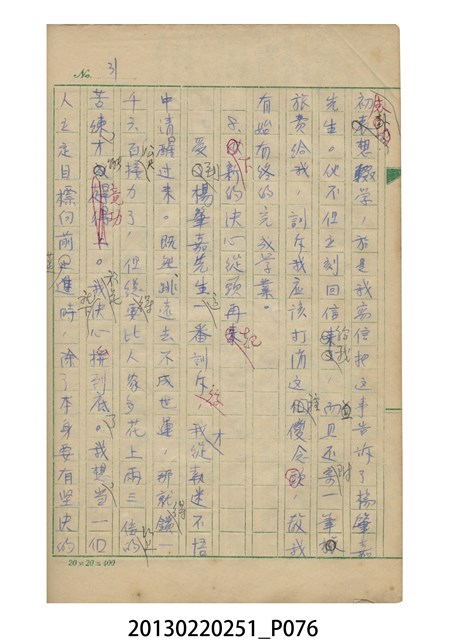 No. 31
初想輟學，於是我寫信把這事告訴了楊肇嘉
先生。他不但立刻回信給我，而且還附一筆
旅費給我，訓斥我應該打消這種傻念頭，激
有始有終的完成學業。
8、下新的決心從頭再起
受到楊肇嘉先生這一番訓斥後，我才從執迷不悟
中清醒過來。既然跳遠去不成世運，那就鐵
千六百公尺接力了，但總得比人家多花上兩三倍的
苦練才能竟功。我決心拼到底了。我想當一個
人立定目標向前邁進時，除了本身要有堅決的
20×20=400
20130220251_P076